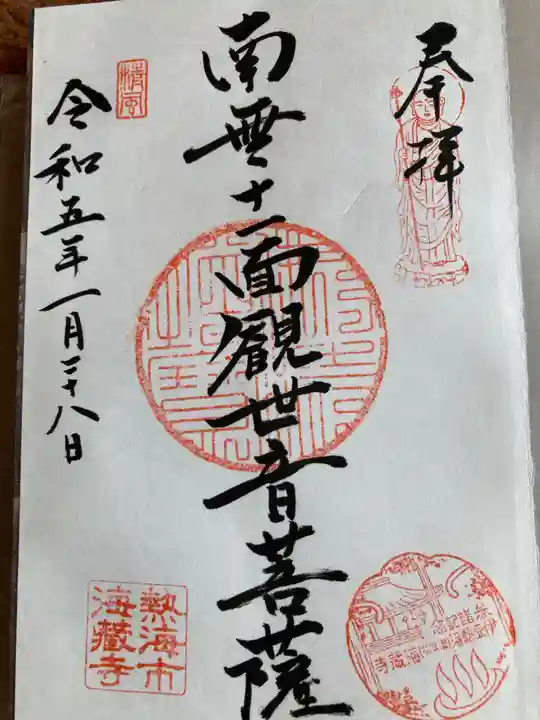 奉拝
南無十一面観世音菩薩
令和五年一月二十八日
熱海市
海蔵寺
参詣記念